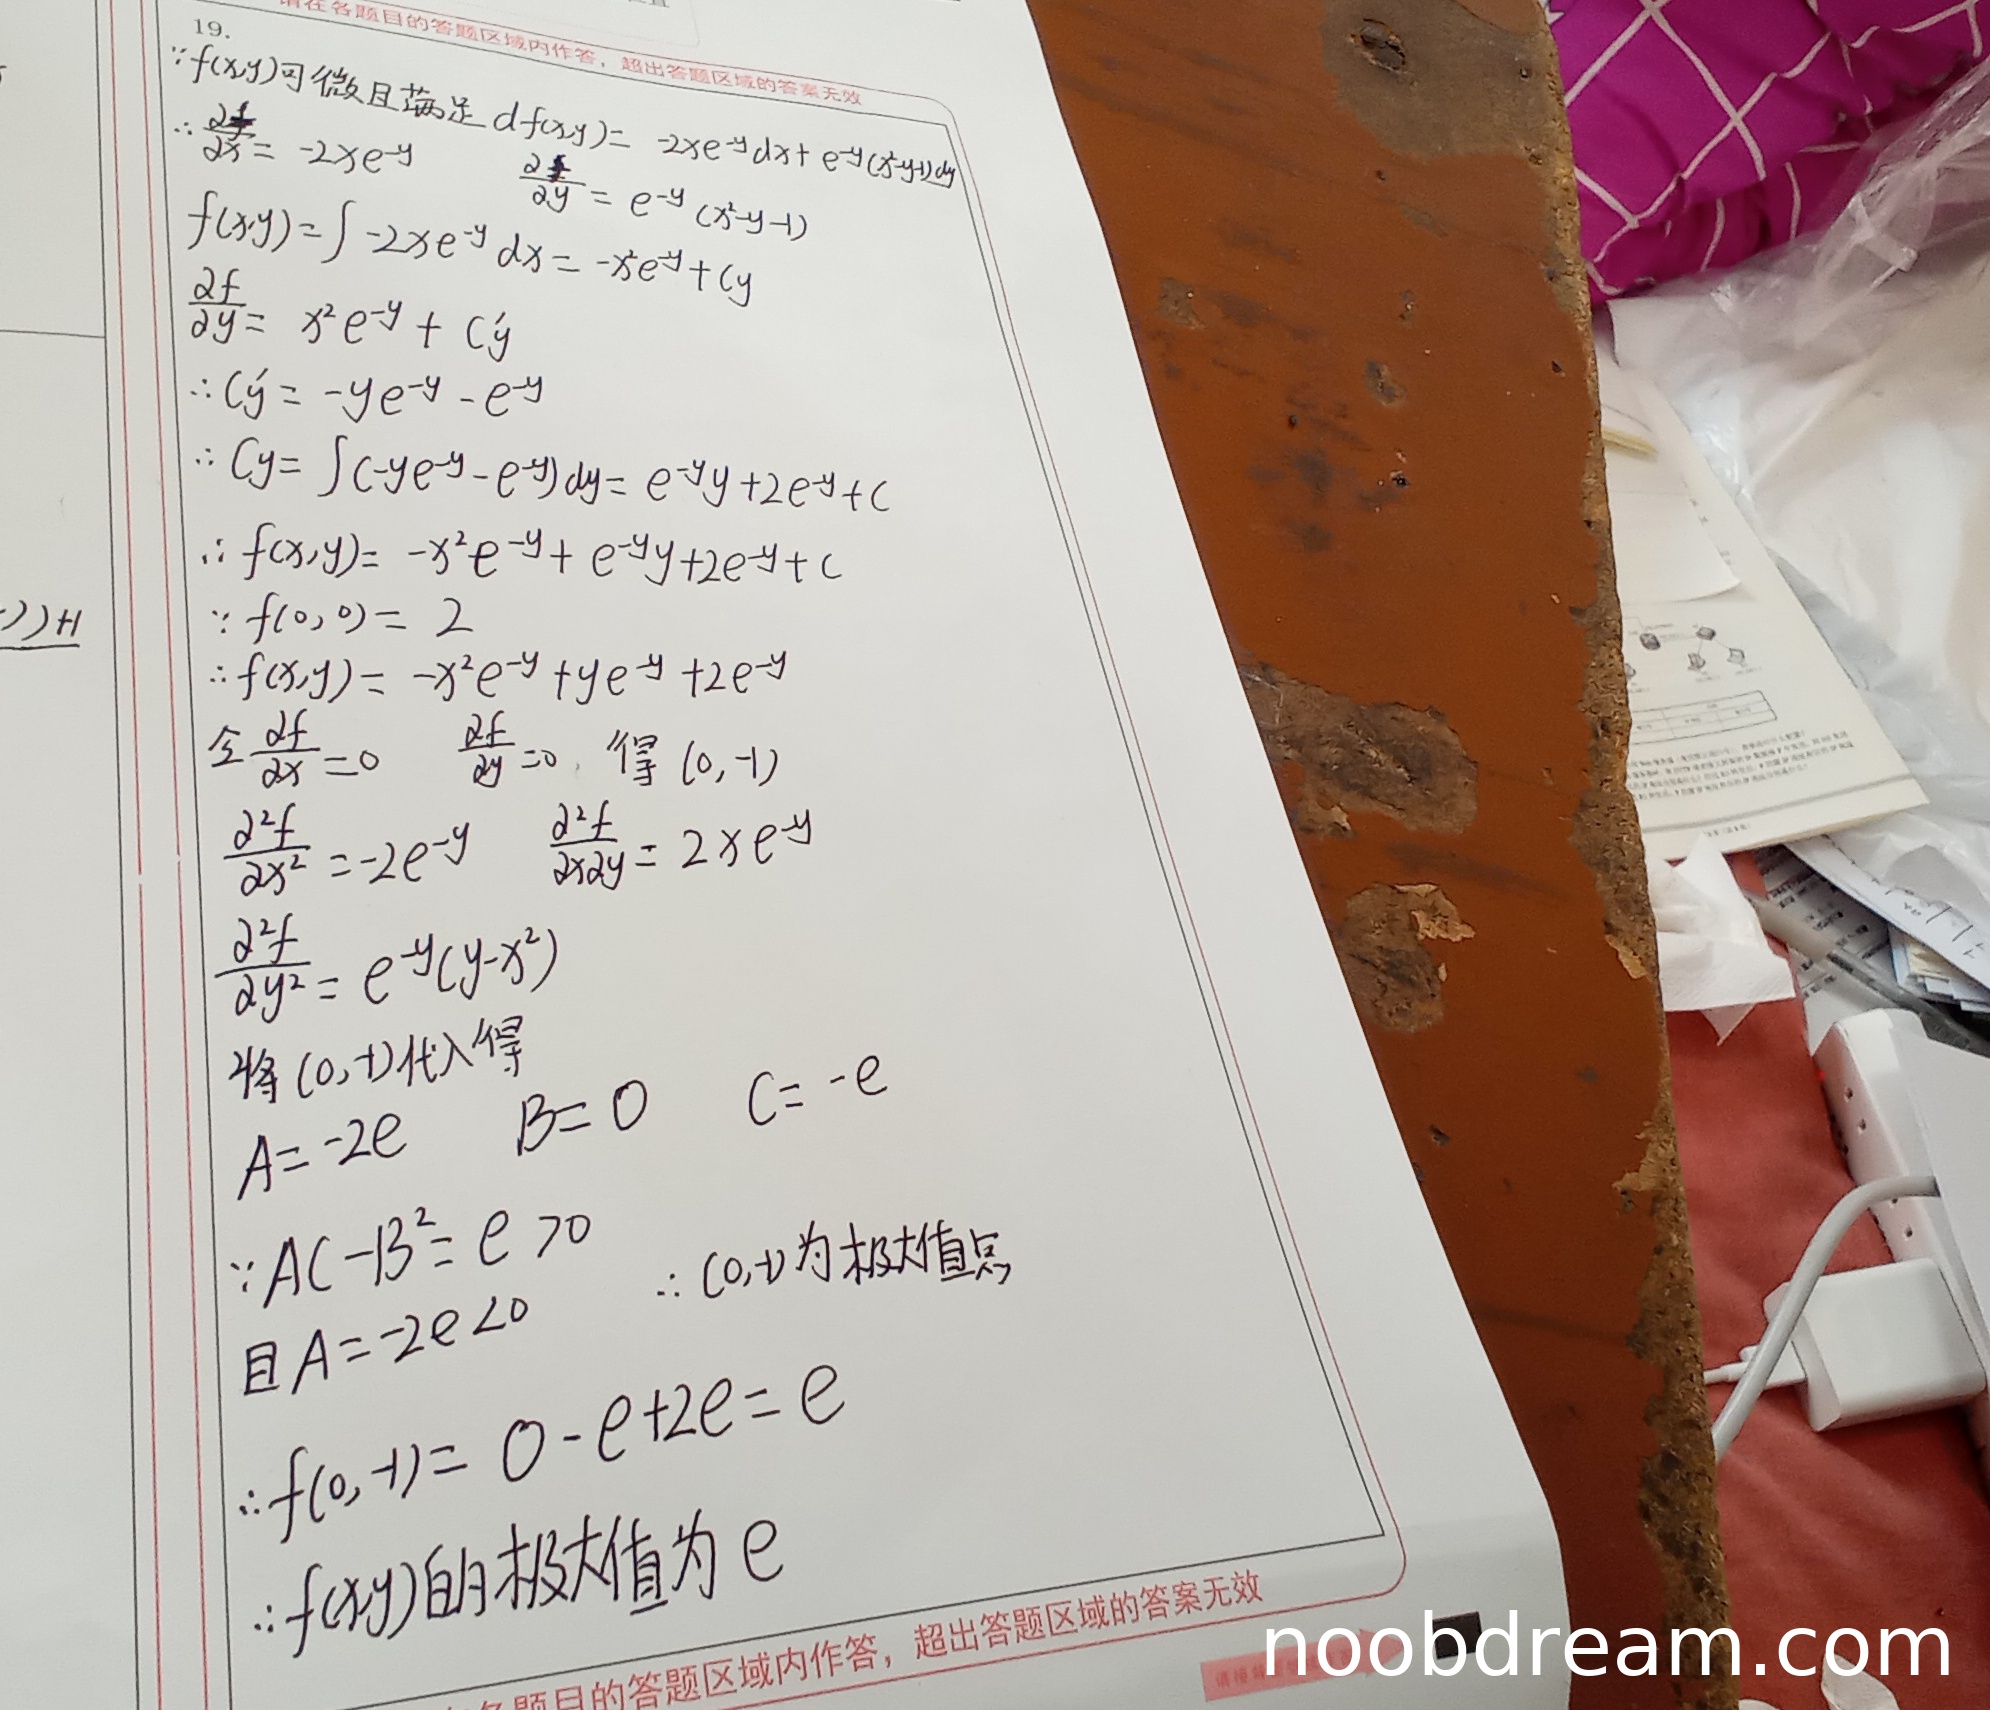 请在各题目的答题区域内作答，超出答题区域的答案无效
19.
∵f(x,y)可微且满足 df(x,y)= -2xe^-y dx+e^-y(x²-y-1)dy
∴ ∂f/∂x = -2xe^-y ∂f/∂y = e^-y (x²-y-1)
f(x,y)=∫-2xe^-y dx= -x²e^-y+Cy
∂f/∂y = x²e^-y + C'y
∴C'y= -ye^-y -e^-y
∴ Cy= ∫(-ye^-y-e^-y)dy= e^-y y+2e^-y+C
∴ f(x,y)= -x²e^-y+ e^-y y+2e^-y+C
∵ f(0,0)= 2
∴f(x,y)= -x²e^-y +ye^-y +2e^-y
令 ∂f/∂x =0 ∂f/∂y =0, 得 (0,-1)
∂²f/∂x² = -2e^-y ∂²f/∂x∂y = 2xe^-y
∂²f/∂y² = e^-y(y-x²)
将(0,-1)代入得
A= -2e B= 0 C= -e
∵AC-B²= e >0
且A=-2e<0 ∴ (0,-1)为极大值点
∴f(0,-1)= 0-e+2e= e
∴f(x,y)的极大值为e
各题目的答题区域内作答，超出答题区域的答案无效
))+1
noobdream.com